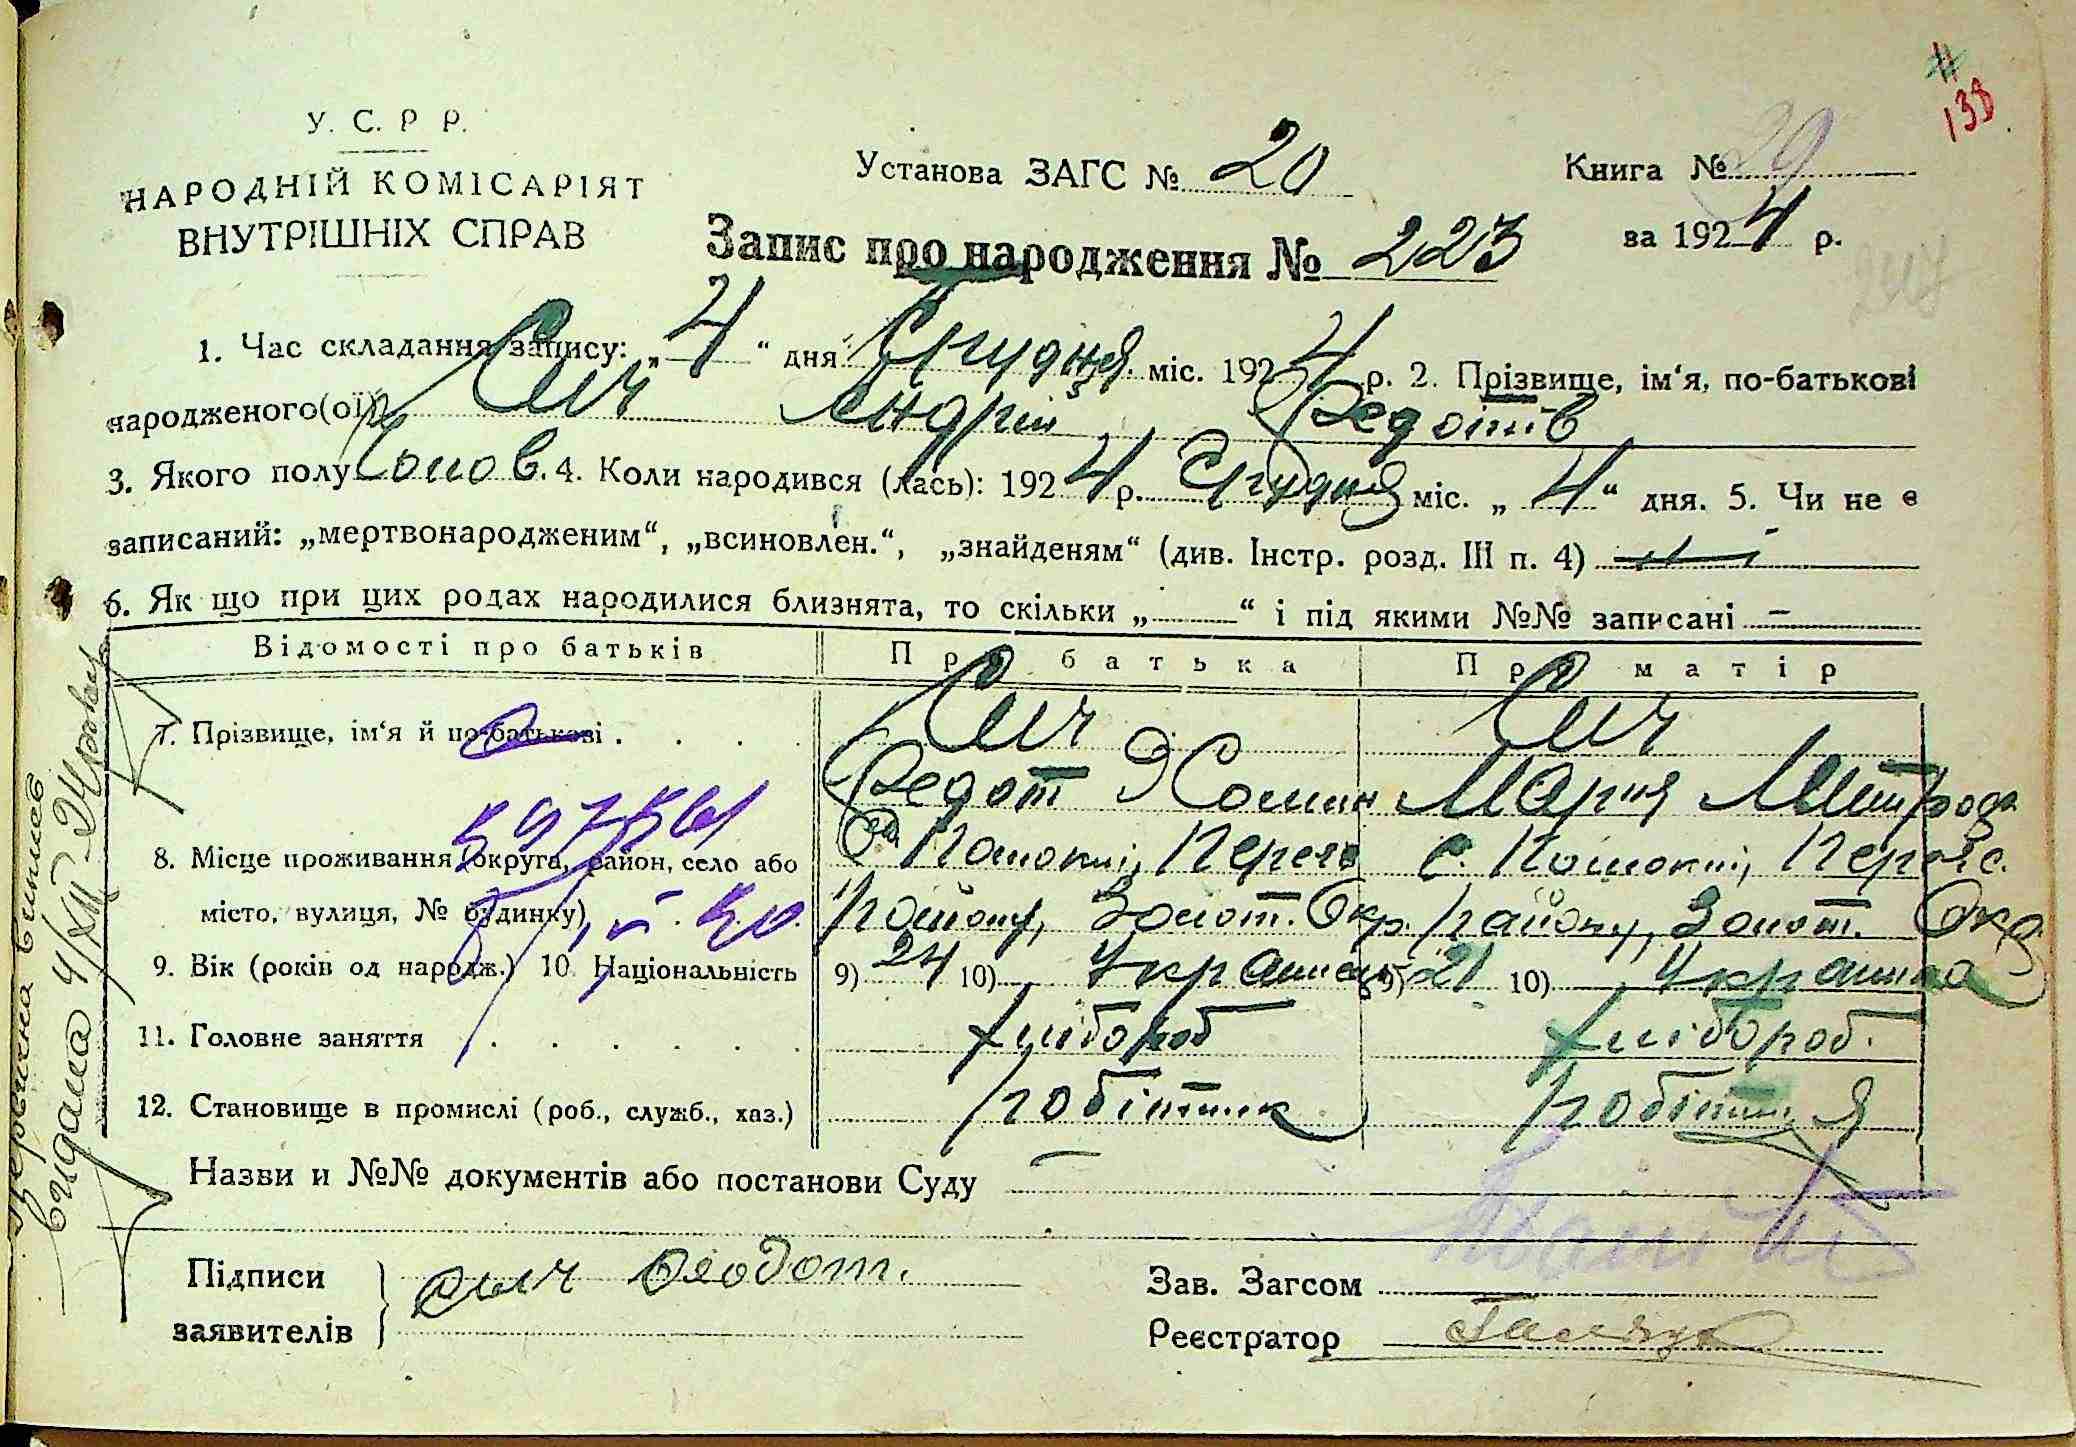 138
У. С. Р Р.
НАРОДНІЙ КОМІСАРІЯТ
ВНУТРІШНІХ СПРАВ
Установа ЗАГС № 20
Книга № 29
за 1924 р.
Запис про народження № 223
247
1. Час складання запису: „4“ дня Грудня міс. 1924 р. 2. Прізвище, ім‘я, по-батькові
народженого(ої) Сич Андрій Федотів
3. Якого полу Чолов. 4. Коли народився (лась): 1924 р. Грудня міс. „4“ дня. 5. Чи не є
записаний: „мертвонародженим“, „всиновлен.“, „знайденям“ (див. Інстр. розд. III п. 4) ні
6. Як що при цих родах народилися близнята, то скільки „—“ і під якими №№ записані –
Відомості про батьків Про батька Про матір
7. Прізвище, ім‘я й по-батькові . . . . Сич Сич
Федот Хомин Мария
597561
8. Місце проживання (округа, район, село або
місто, вулиця, № будинку) Району, Золот. Окр. району, Золот. Окр.
50
9. Вік (років од народж.) 10. Національність 9) 24 10) Українець 9) 21 10) Українка
11. Головне заняття . . . . . . хлібороб хлібороб.
12. Становище в промислі (роб., служб., хаз.) робітник робітниця
Назви и №№ документів або постанови Суду —
Підписи
заявителів
Сыч Феодот.
Зав. Загсом
Реєстратор
видана 4/XII 24